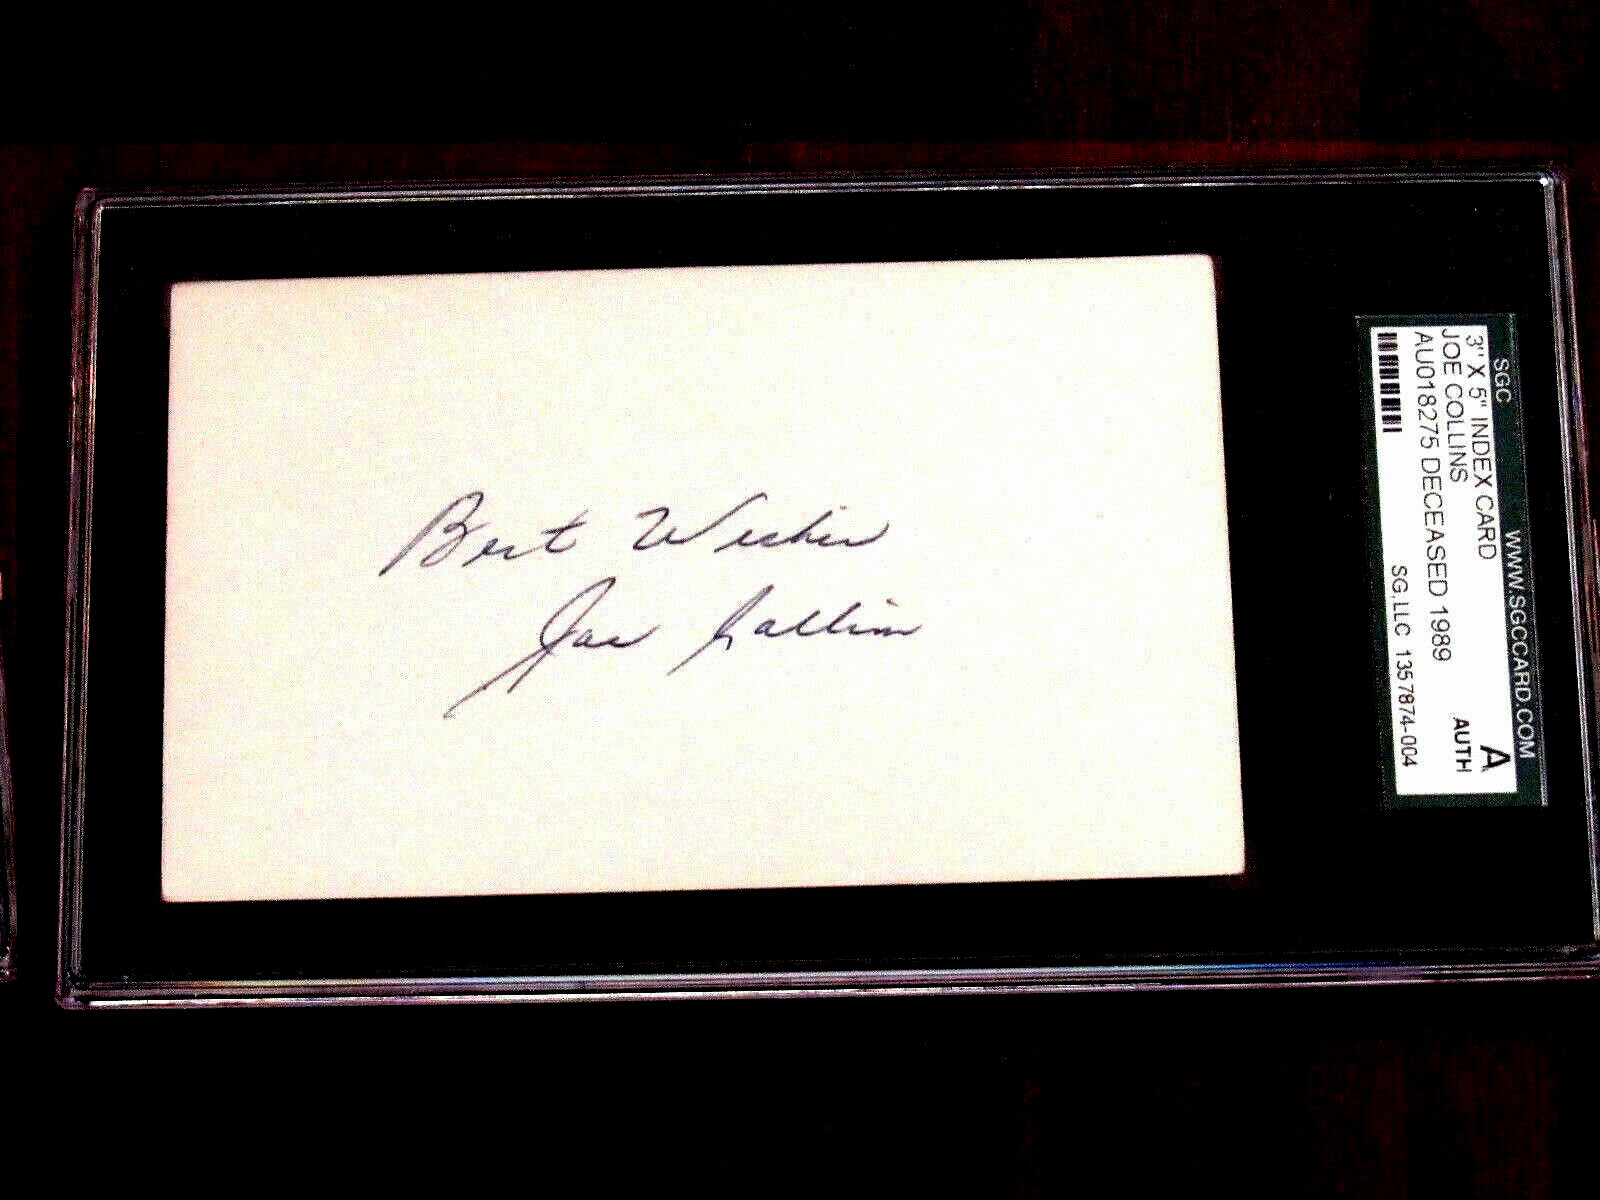 Best Wishes
Joe Collins
SGC WWW.SGCCARD.COM
3" X 5" INDEX CARD A
JOE COLLINS AUTH
AU018275 DECEASED 1989
SG,LLC 1357874-004